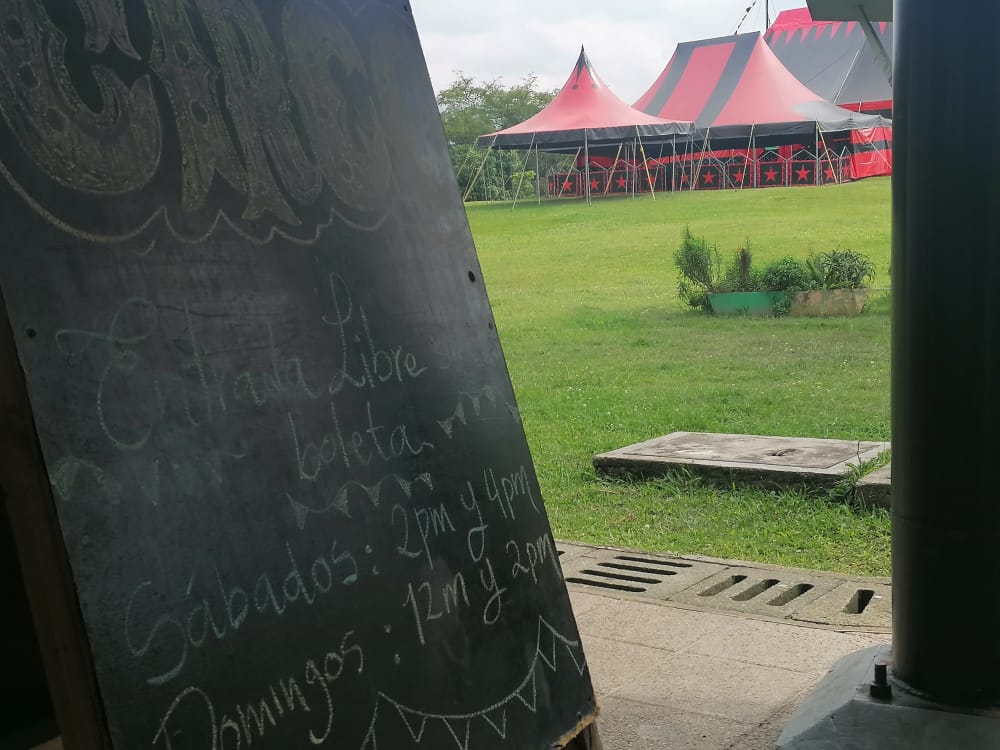 CIRCO
Entrada Libre sin
boleta
Sábados: 2pm y 4pm
Domingos: 12m y 2pm